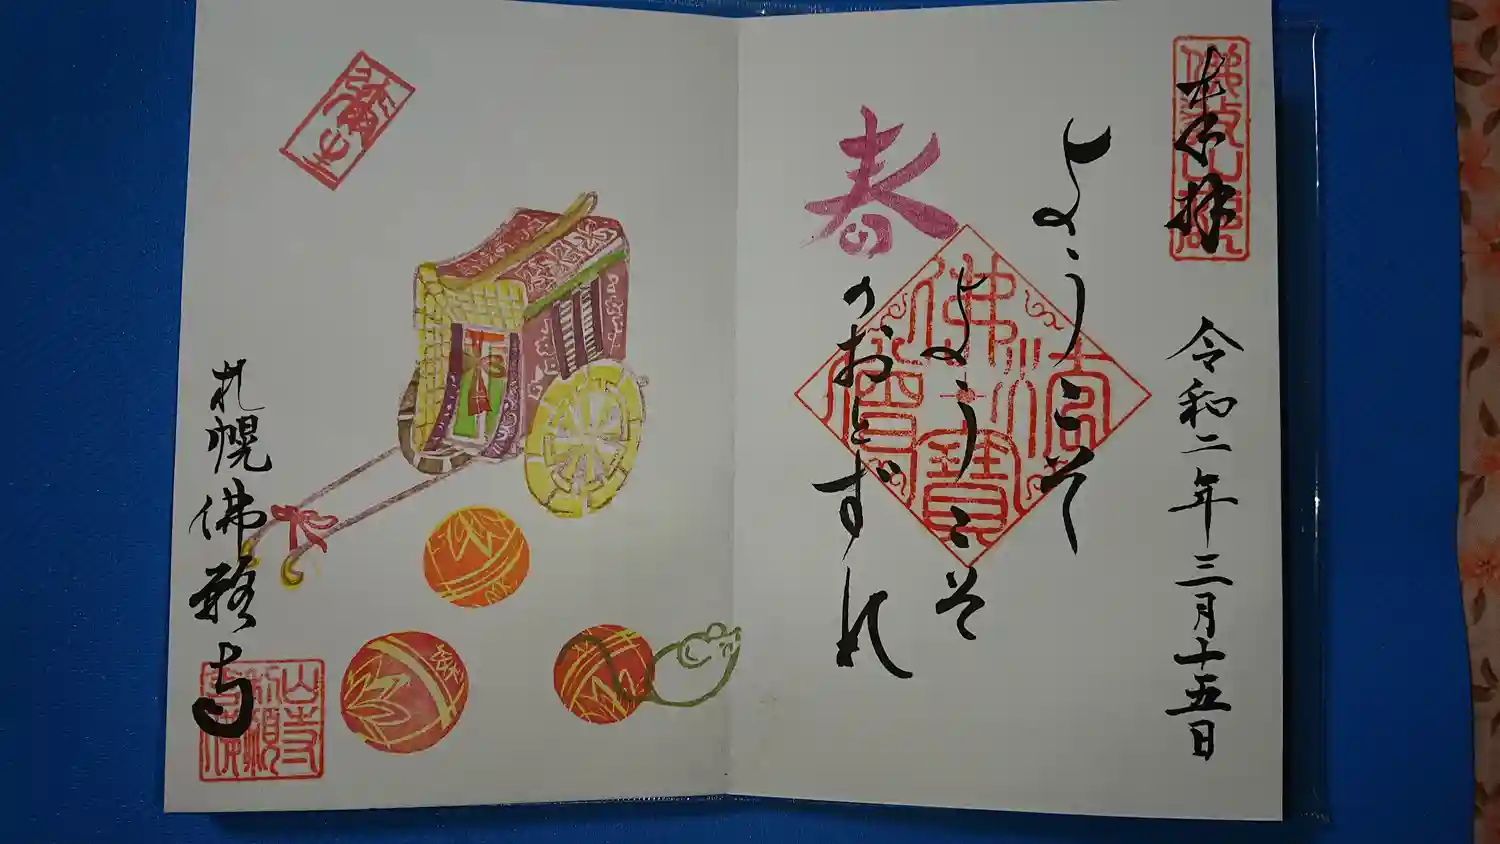 奉拝
令和二年三月十五日
ようこそ
ようこそ
春の
おとずれ
佛法僧寶
札幌佛願寺